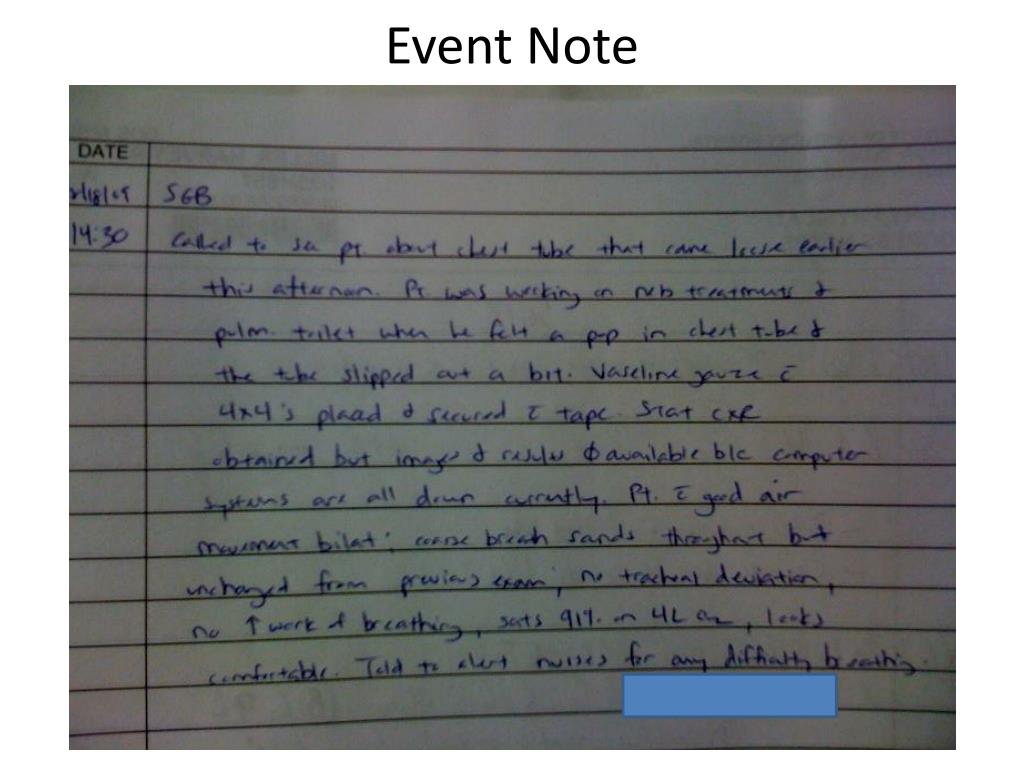 Event Note
DATE
2/18/09 SGB
14:30 Called to see pt about chest tube that came loose earlier
this afternoon. Pt. was working on neb treatments &
pulm. toilet when he felt a pop in chest tube &
the tube slipped out a bit. Vaseline gauze c̄
4x4's placed & secured c̄ tape. Stat CXR
obtained but images & results ϕ available b/c computer
systems are all down currently. Pt. c̄ good air
movement bilat; coarse breath sounds throughout but
unchanged from previous exam; no tracheal deviation,
no ↑ work of breathing, sats 91% on 4L O2, looks
comfortable. Told to alert nurses for any difficulty breathing.